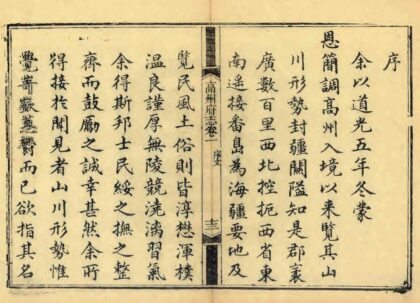 序
余以道光五年冬蒙
恩簡調髙州入境以来覧其山
川形勢封疆関隘知是郡襄
廣數百里西北控扼西省東
南遥接番島為海疆要地及
高州府志卷一
序文
十三
覧民風土俗則皆淳懋渾樸
温良謹厚無陵競澆漓習氣
余得斯邦士民綏之撫之整
齊而鼓勵之誠幸甚然余所
得接於聞見者山川形勢惟
覺
而已欲指其名